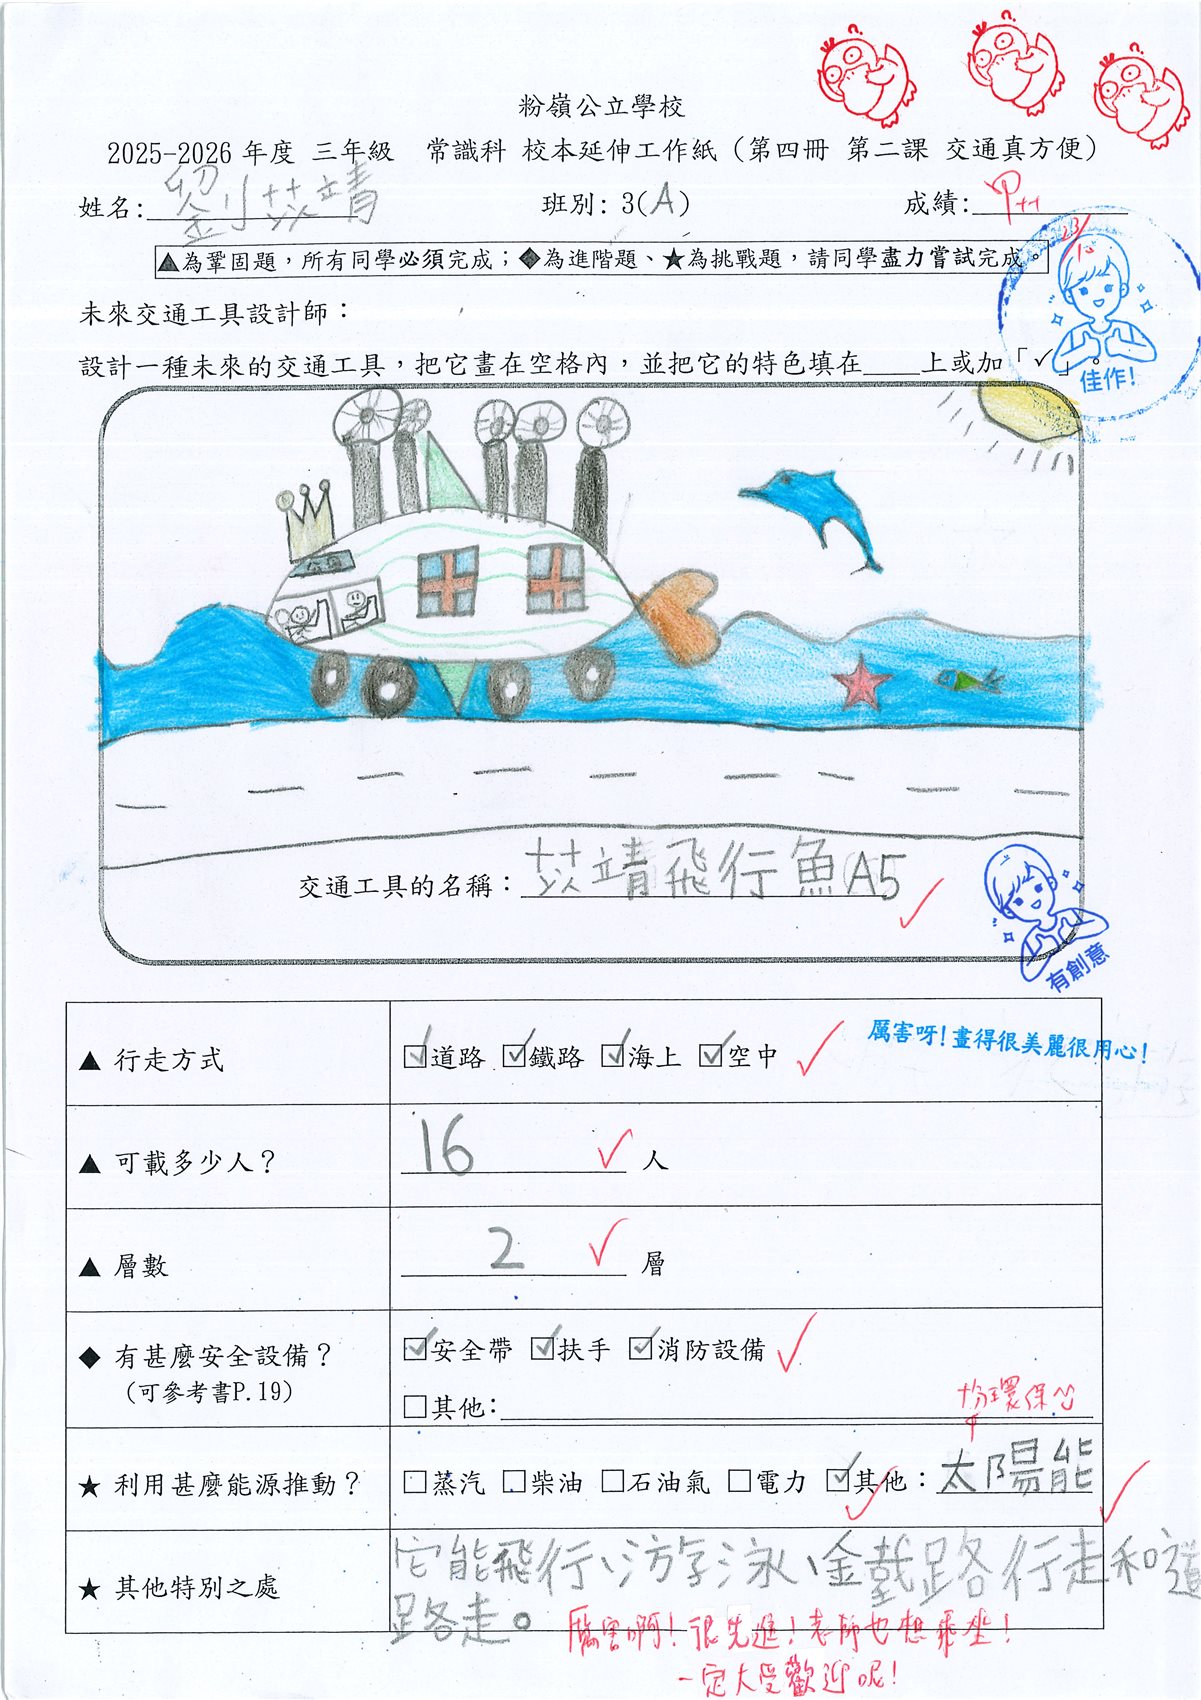 粉嶺公立學校
2025-2026 年度 三年級 常識科 校本延伸工作紙 (第四冊 第二課 交通真方便)
姓名: 劉小苡靖 班別: 3(A) 成績: 甲++
23/10
▲為鞏固題，所有同學必須完成；◆為進階題、★為挑戰題，請同學盡力嘗試完成。
未來交通工具設計師：
設計一種未來的交通工具，把它畫在空格內，並把它的特色填在____上或加「✓」。
佳作！
交通工具的名稱：苡靖飛行魚A5
有創意
▲ 行走方式 ☑道路 ☑鐵路 ☑海上 ☑空中
厲害呀！畫得很美麗很用心！
▲ 可載多少人？ 16 人
▲ 層數 2 層
◆ 有甚麼安全設備？ ☑安全帶 ☑扶手 ☑消防設備
(可參考書P.19) □其他:
十分環保
★ 利用甚麼能源推動？ □蒸汽 □柴油 □石油氣 □電力 ☑其他：太陽能
★ 其他特別之處 它能飛行、游泳、鐵路行走和道
路走。
厲害啊！很先進！老師也想乘坐！
一定大受歡迎呢！